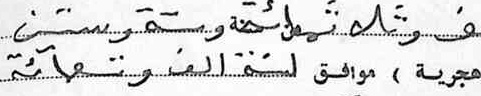 ف وثلاثمائة وستة وستين
هجرية ، موافق لسنة الف وتسعمائة